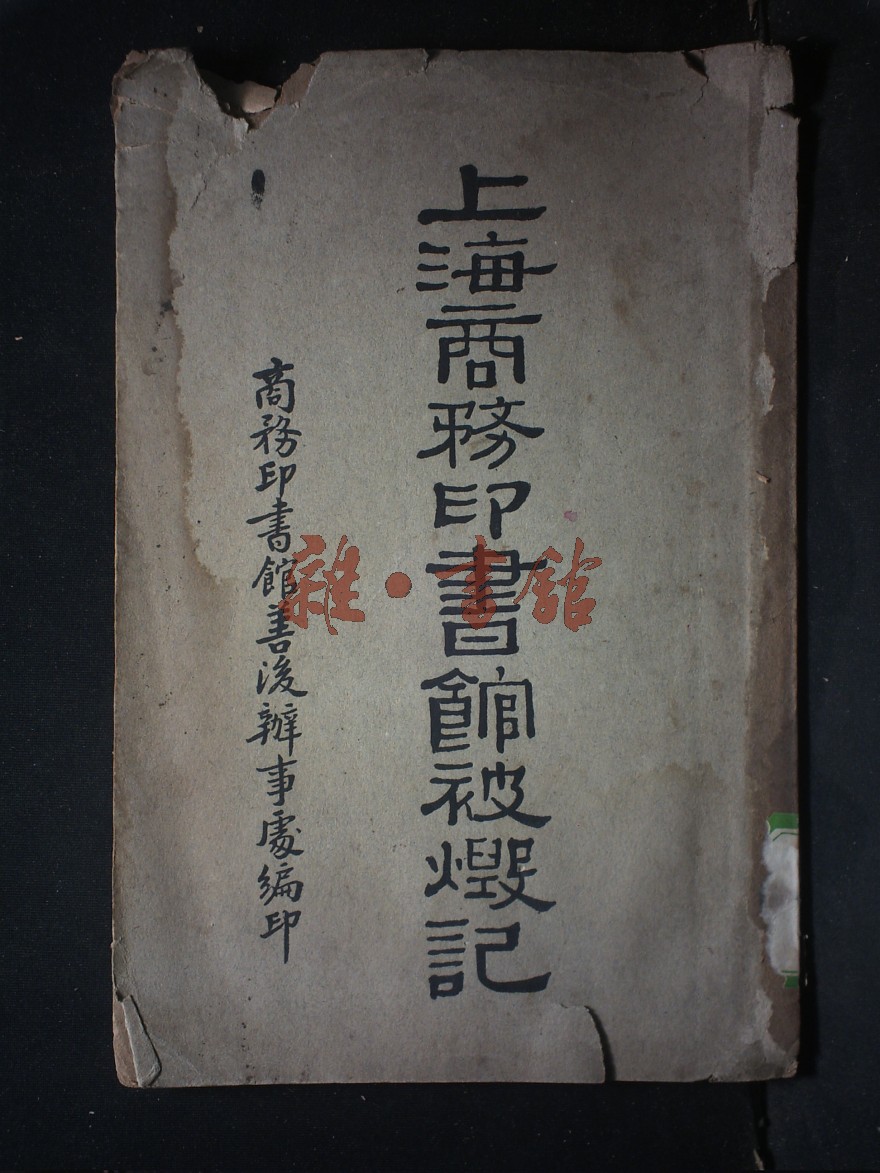 上海商務印書館被燬記
商務印書館善後辦事處編印
雜·書館